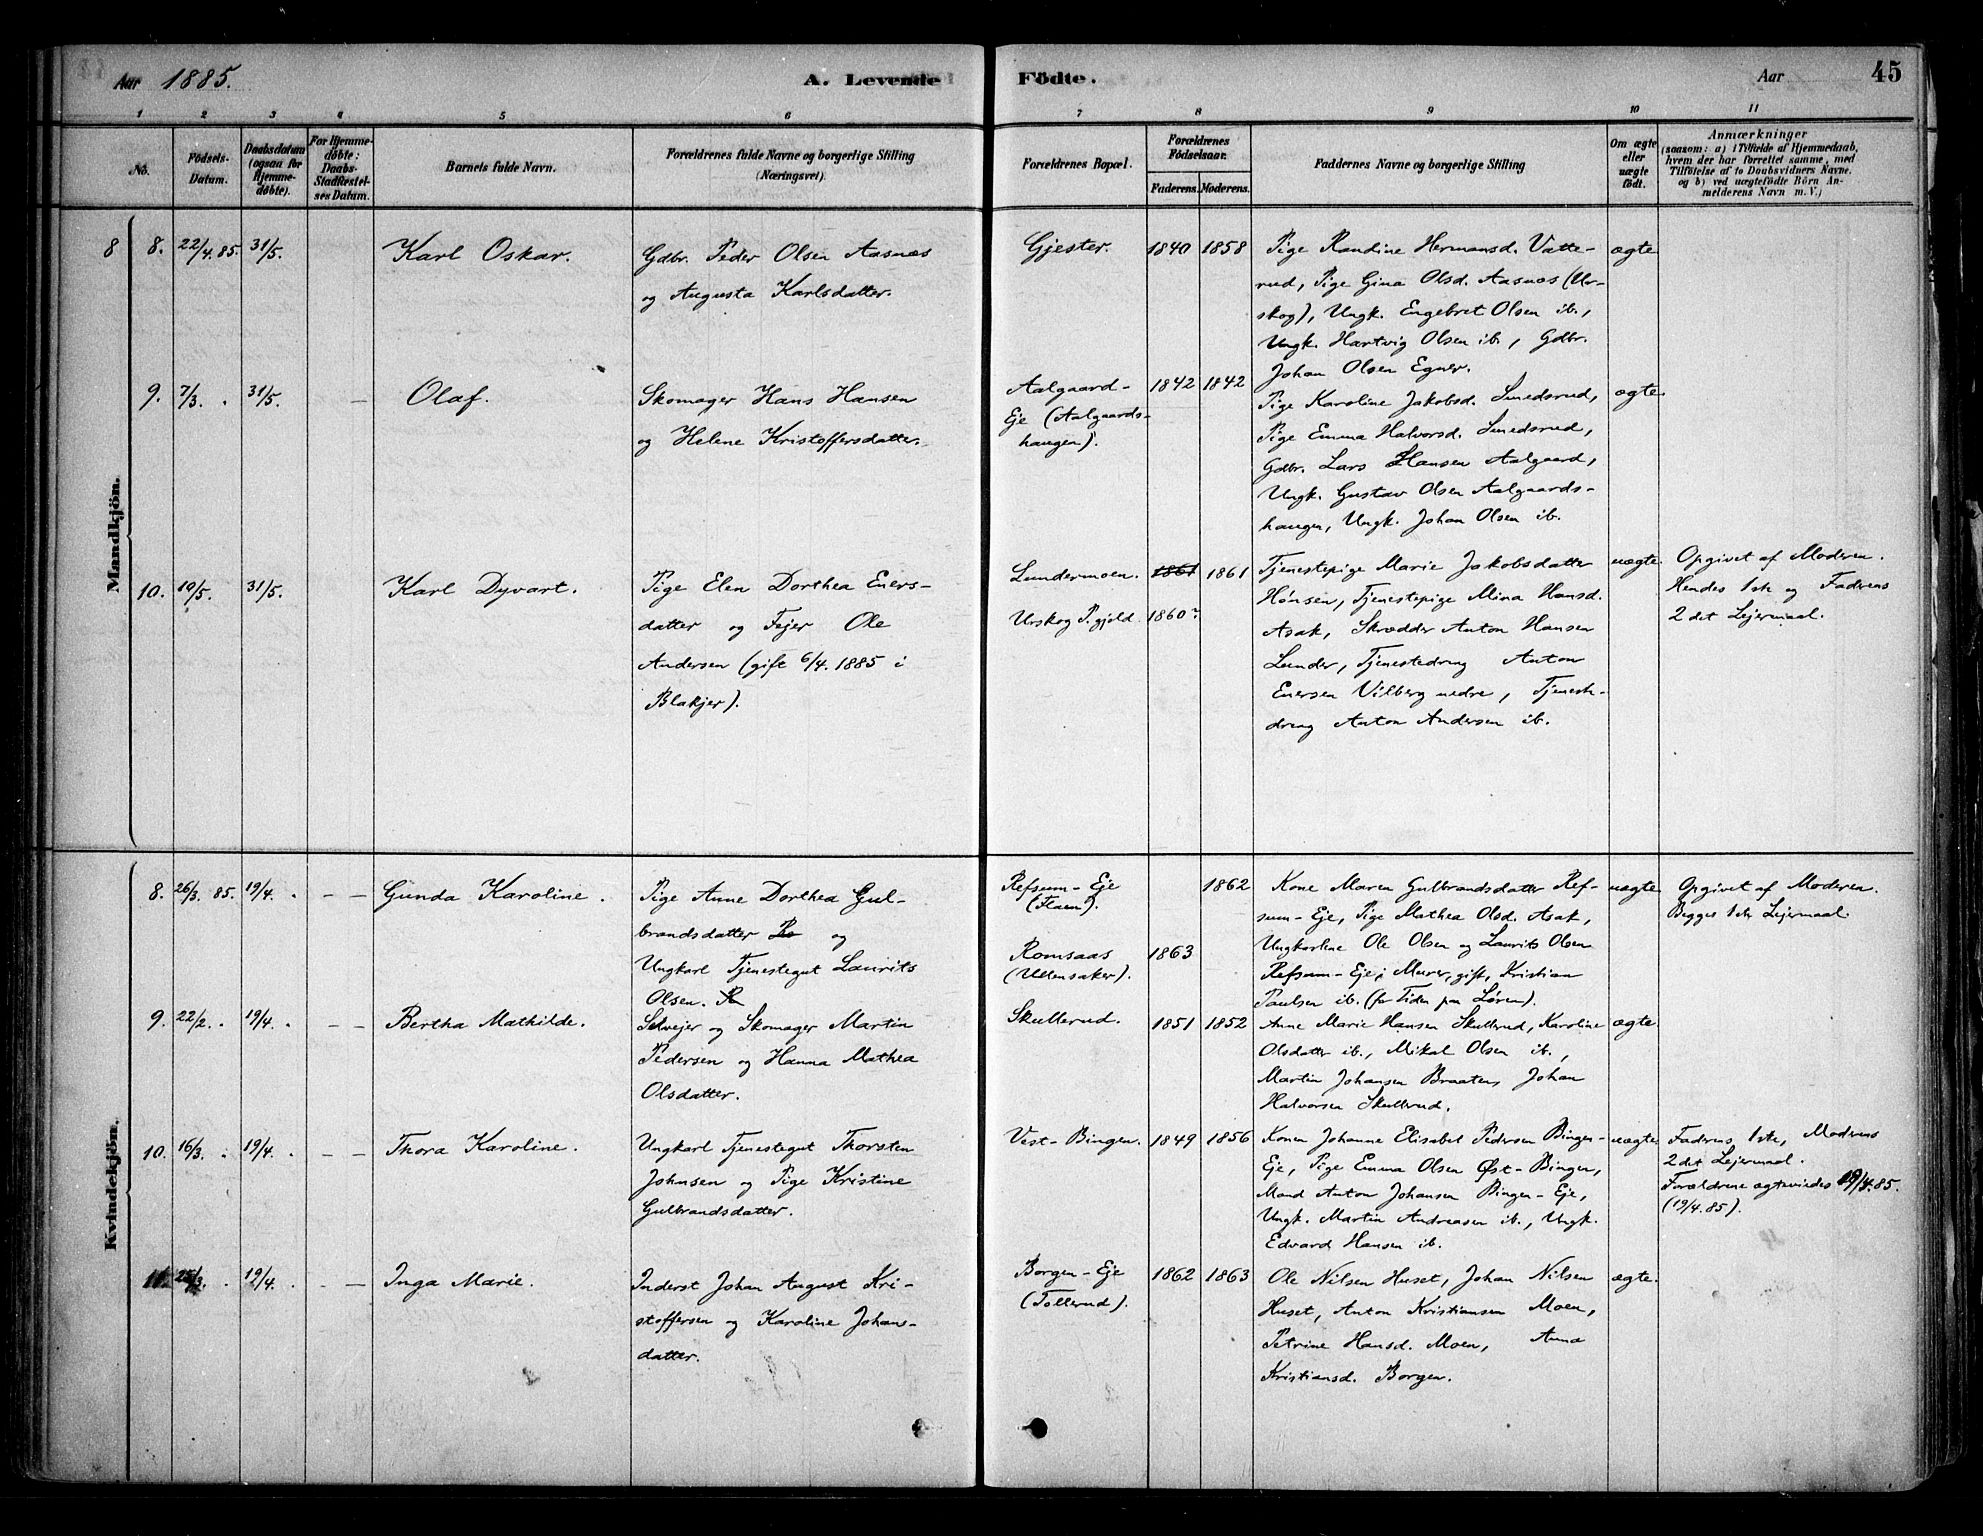 Aar 1885.
A. Levende Födte.
Aar
45
1
2
3
4
5
6
7
8
9
10
11
No.
Födsels-
Datum.
Daabsdatum
(ogsaa for
Hjemme-
döbte).
For Hjemme-
döbte:
Daabs-
Stadfæstel-
ses Datum.
Barnets fulde Navn.
Forældrenes fulde Navne og borgerlige Stilling
(Næringsvei).
Forældrenes Bopæl.
Forældrenes
Födselsaar.
Faderens. Moderens.
Faddernes Navne og borgerlige Stilling
Om ægte
eller
uægte
födt.
Anmærkninger
(saasom: a) i Tilfælde af Hjemmedaab,
hvem der har forrettet samme, med
Tilföielse af to Daabsvidners Navne,
og b) ved uægtefödte Börn An-
melderens Navn m. V.)
Mandkjön.
8
8. 22/4.85. 31/5.
Karl Oskar.
Gdbr. Peder Olsen Aasnæs
og Augusta Karlsdatter.
Gjester.
1840 1858
Pige Randine Hermansd. Vatte-
rud, Pige Gina Olsd. Aasnæs (Ur-
skog), Ungk. Engebret Olsen ib.,
Ungk. Hartvig Olsen ib, Gdbr.
Johan Olsen Egner.
ægte
9. 7/3. . 31/5. —
Olaf.
Skomager Hans Hansen
og Helene Kristoffersdatter.
Aalgaard-
Eje (Aalgaards-
haugen).
1842 1842
Pige Karoline Jakobsd. Smedsrud,
Pige Emma Halvorsd. Smedsrud,
Gdbr. Lars Hansen Aalgaard,
Ungk. Gustav Olsen Aalgaards-
haugen, Ungk. Johan Olsen ib.
ægte
10. 10/5. 31/5.
Karl Dyvart.
Pige Elen Dorthea Eners-
datter og Fejer Ole
Andersen (gift 6/4.1885 i
Blakjer).
Lundermoen.
Urskog P.gjeld.
1861 1861
1860?
Tjenestepige Marie Jakobsdatter
Hønsen, Tjenestepige Mina Hansd.
Asak, Skrædder Anton Hansen
Lunder, Tjenestedreng Anton
Enersen Vilberg nedre, Tjeneste-
dreng Anton Andersen ib.
uægte
Opgivet af Moderen.
Hendes 1ste og Faderens
2det Lejermaal.
Kvindekjön.
8. 26/3.85. 19/4. . — —
Gunda Karoline.
Pige Anne Dorthea Gul-
brandsdatter og
Ungkarl Tjenestegut Laurits
Olsen.
Refsum-Eje
(Flaen).
Romsaas
(Ullensaker).
1862
1863
Kone Maren Gulbrandsdatter Ref-
sum-Eje, Pige Mathea Olsd. Asak,
Ungkarlene Ole Olsen og Laurits Olsen
Refsum-Eje, Murer, gift, Kristian
Paulsen ib. (for Tiden paa Løren).
uægte
Opgivet af Moderen.
Begges 1ste Lejermaal.
9. 22/2. . 19/4. . — —
Bertha Mathilde.
Selvejer og Skomager Martin
Pedersen og Hanna Mathea
Olsdatter.
Skullerud.
1851 1852
Anne Marie Hansen Skullerud, Karoline
Olsdatter ib., Mikal Olsen ib.,
Martin Johansen Braaten, Johan
Halvorsen Skullerud.
ægte
10. 16/3. . 19/4. . — —
Thora Karoline.
Ungkarl Tjenestegut Thorsten
Johnsen og Pige Kristine
Gulbrandsdatter.
Vest-Bingen.
1849 1856
Konen Johanne Elisabet Pedersen Bingen-
Eje, Pige Emma Olsen Øst-Bingen,
Mand Anton Johansen Bingen-Eje,
Ungk. Martin Andreasen ib., Ungk.
Edvard Hansen ib.
uægte
Faderens 1ste, Moderens
2det Lejermaal.
Forældrene ægtevied es 19/4.85.
(19/4.85).
11. 25/3. . 19/4. . — —
Inga Marie.
Inderst Johan August Kri-
stoffersen og Karoline Johans-
datter.
Borgen-Eje
(Tollerud).
1862 1863
Ole Nilsen Huset, Johan Nilsen
Huset, Anton Kristiansen Moen,
Petrine Hansd. Moen, Anna
Kristiansd. Borgen.
ægte.